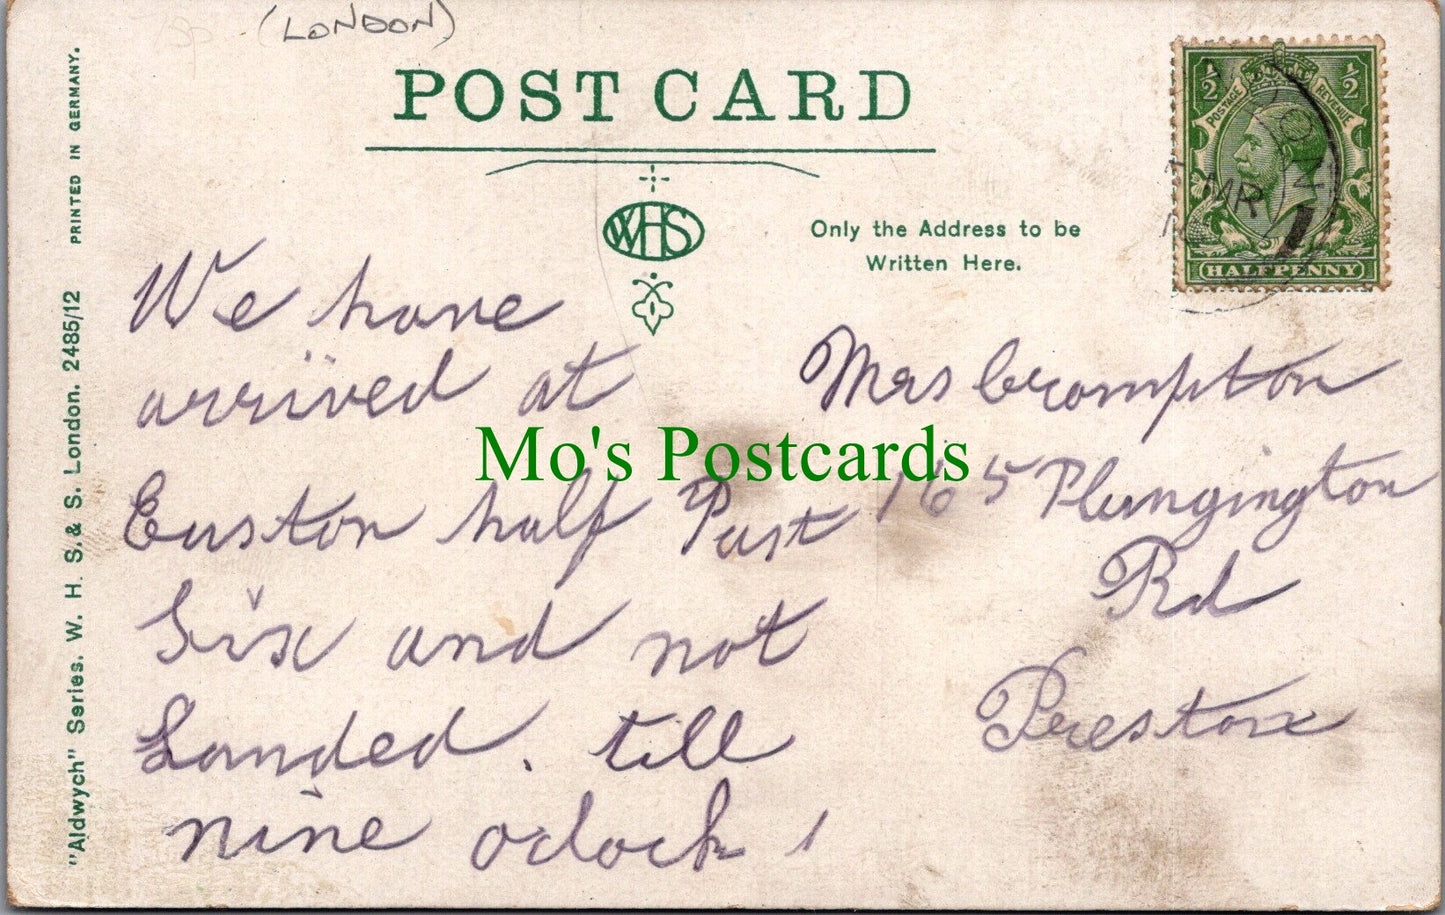 (LONDON)
POST CARD
WHS
Only the Address to be
Written Here.
½ ½
POSTAGE REVENUE
HALFPENNY
MR
"Aldwych" Series. W. H. S. & S. London. 2485/12 PRINTED IN GERMANY.
We have
arrived at
Euston half Past
Six and not
Landed. till
nine oclock
Mrs Crompton
165 Plungington
Rd
Preston
Mo's Postcards